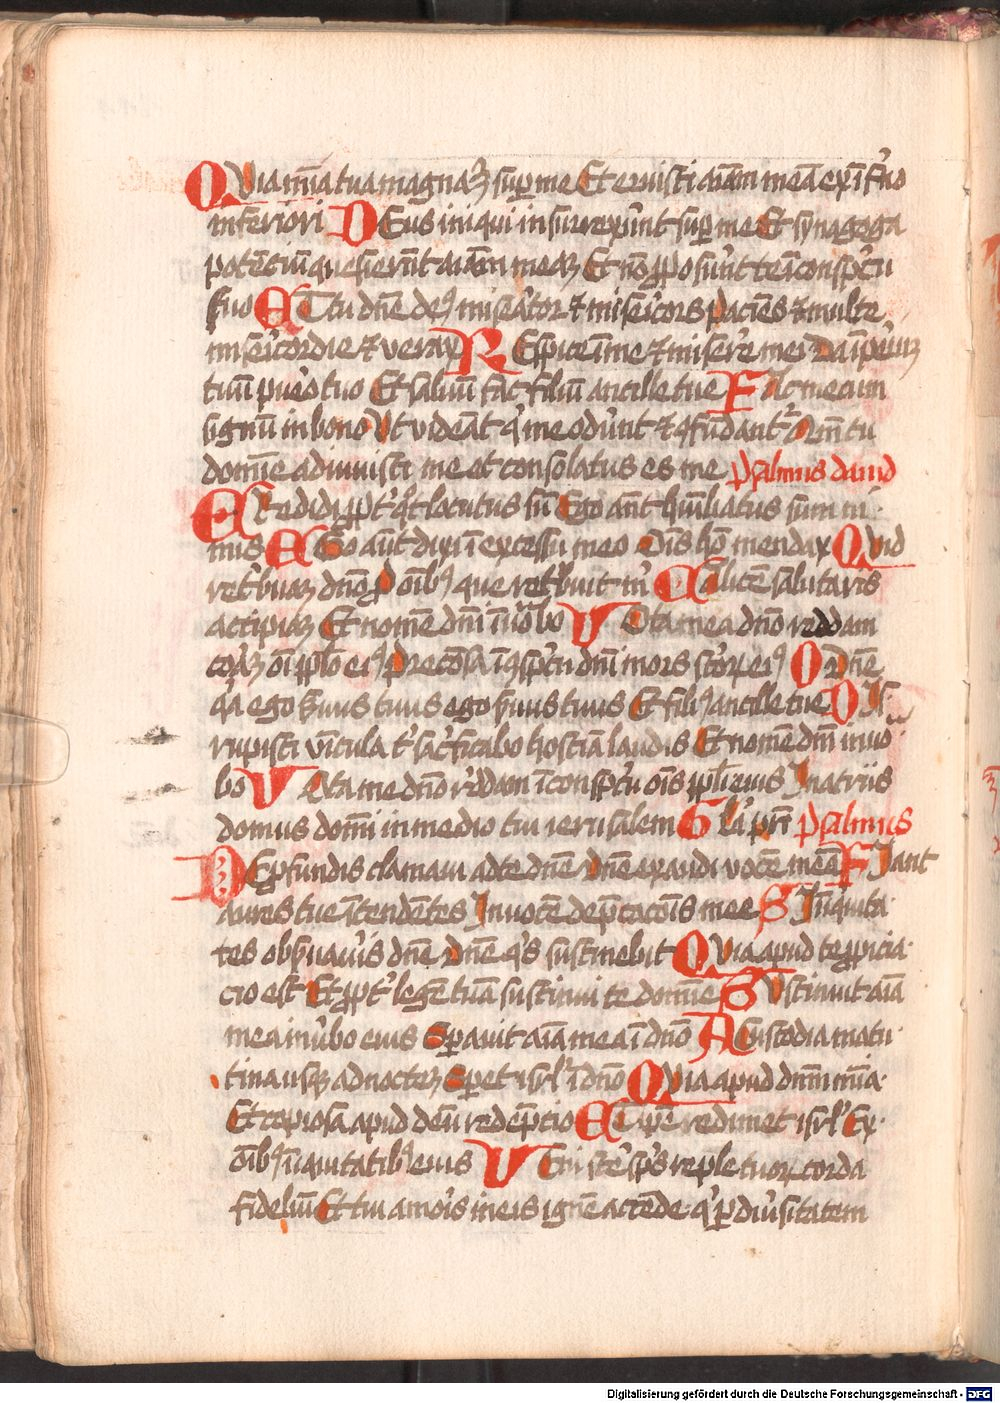 QVia mīa tua magnaʒ suꝑ me Et eruisti aīam meā ex īf'no
inferiori DEus iniqui insurrexūnt suꝑ me Et synagoga
potētiū quesierūt aīam meaʒ Et nō ꝓposūnt te ī conspc̄tu
suo ETtu dn̄e de9 mis'ator ⁊ mis'icors paciēs ⁊ multe
mis'icordie ⁊ verax REspice ī me ⁊ mis'ere mei Da īp'iuʒ
tuū pu'o tuo Et saluū fac filiū ancille tue FAc mecum
signū in bono Vt videāt q' me odūnt ⁊ ꝯfūdant' Qm̄ tu
domīe adiuuisti me et consolatus es me psalmus dauid
CRedidi ꝓpt' qt locutus sū Ego aūt humiliatus sum ni
mis EGo aūt dixi ī excessu meo Oīs hō mendax QVid
ret'buaʒ dn̄o ꝓ oīb9 que ret'buit m' CAlicē salutaris
accipiaʒ Et nomē dnī īuocabo VOta mea dn̄o reddam
corāʒ oī ppl̄o ei9 Preciosa ī ꝯspc̄tu dnī mors sc̄torʒ ei9 O Dn̄e
q'a ego s'uus tuus ego s'uus tuus Et fili9 ancille tue DIs
rupisti vīcula t' sac'ficabo hostiā laudis Et nomē dnī inuo
bo VOta me dn̄o r'ddam ī conspc̄tu oīs ppl̄i eius In atriis
domus domī in medio tui ierusalem Gl'a pr̄i psalmus
DE ꝓfundis clamaui ad te dn̄e Dn̄e exaudi vocē meā FIant
aures tue ītendētes In vocē dep̄cacōis mee SI īiquita
tes obs'uau'is dn̄e Dn̄e q's sustinebit QVia apud te ꝓpicia
cio est Et ꝓpt' legē tuā sustinui te domīe SVstinuit aīa
mea in u'bo eius Sꝑauit aīa mea ī dn̄o A Custodia matu
tina usqʒ ad nocteʒ Sp̄et isrl' ī dn̄o QVia apud dn̄m mīa
Et copiosa apud deū redēpcio ET ip̄e redimet isrl' Ex
oīb9 īiquitatib9 eius VEni sc̄e sp̄s reple tuorʒ corda
fideliū Et tui amoris in eis ignē accēde q' ꝑ diu'sitatem
Digitalisierung gefördert durch die Deutsche Forschungsgemeinschaft - DFG